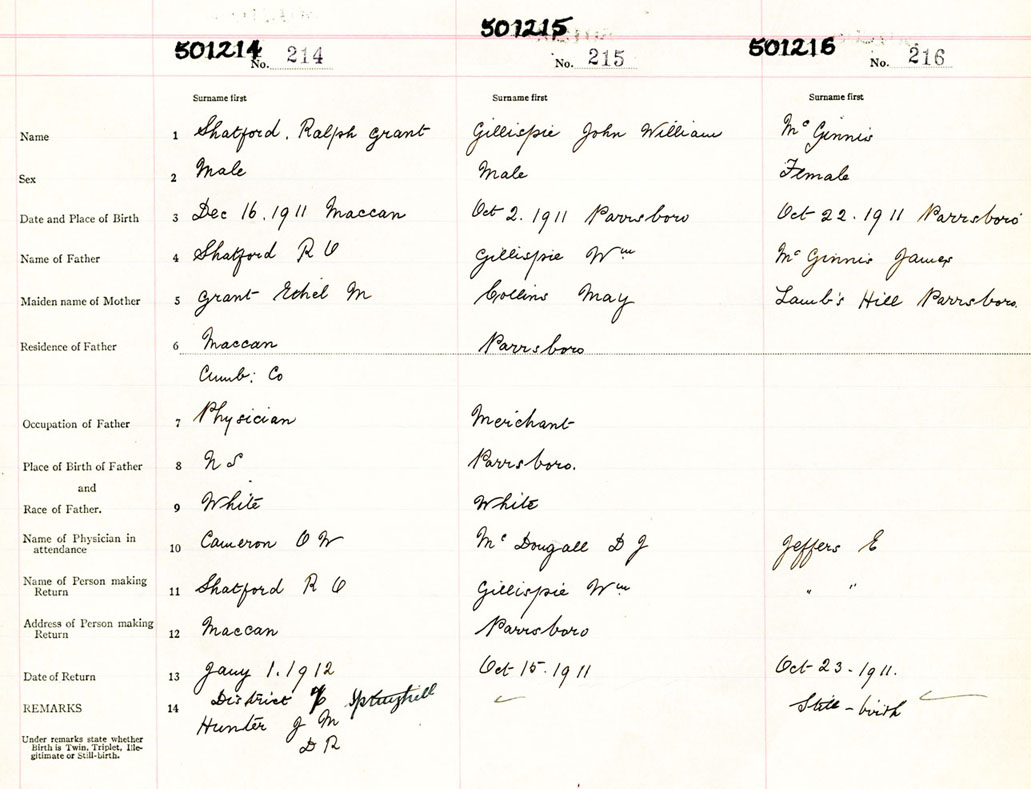 501214 501215 501216
No. 214 No. 215 No. 216
Surname first Surname first Surname first
Name 1 Shatford, Ralph Grant Gillispie John William Mc Ginnis
Sex 2 Male Male Female
Date and Place of Birth 3 Dec 16, 1911 Maccan Oct 2. 1911 Parrsboro Oct 22. 1911 Parrsboro
Name of Father 4 Shatford R O Gillispie Wm Mc Ginnis James
Maiden name of Mother 5 Grant Ethel M Collins May Lamb's Hill Parrsboro.
Residence of Father 6 Maccan Parrsboro
Cumb: Co
Occupation of Father 7 Physician Merchant
Place of Birth of Father 8 N S Parrsboro.
and
Race of Father. 9 White White
Name of Physician in
attendance 10 Cameron O W Mc Dougall D J Jeffers E
Name of Person making
Return 11 Shatford R O Gillispie Wm " "
Address of Person making
Return 12 Maccan Parrsboro
Date of Return 13 Jany 1. 1912 Oct 15. 1911 Oct 23 - 1911.
REMARKS 14 District of Springhill Still-birth
Hunter J M
D R
Under remarks state whether
Birth is Twin, Triplet, Ille-
gitimate or Still-birth.